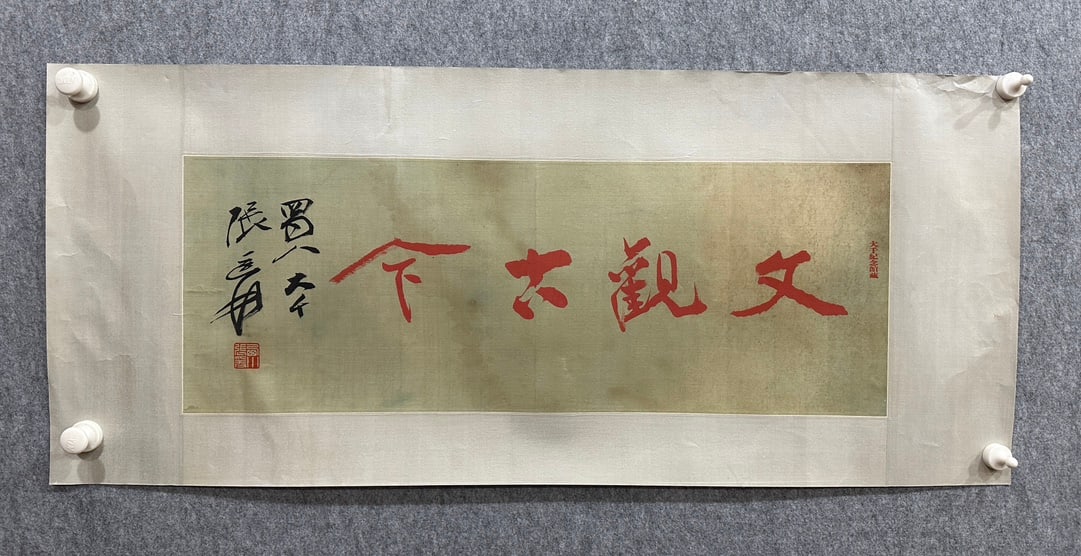 大千紀念館藏
文觀古今
蜀人大千
張爰